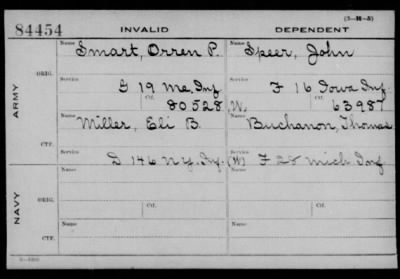 (3-H-5)
84454 INVALID DEPENDENT
Name Smart, Orren P. Name Speer, John
ORIG.
Service G 19 Me. Inf. Service F 16 Iowa Inf.
ARMY
Ctf. 80528 W. Ctf. 63987
Name Miller, Eli B. Name Buchanon, Thomas
CTF.
Service D 146 N.Y. Inf. Service (W) F 28 Mich Inf.
Name Name
NAVY
ORIG.
Ctf. Ctf.
Name Name
CTF.